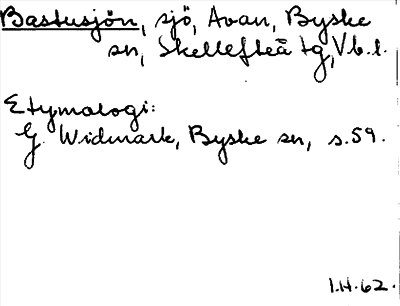 Bastusjön, sjö, Avan, Byske
sn, Skellefteå tg, Vb.l.
Etymologi:
G. Widmark, Byske sn, s.59.
1.H.62.